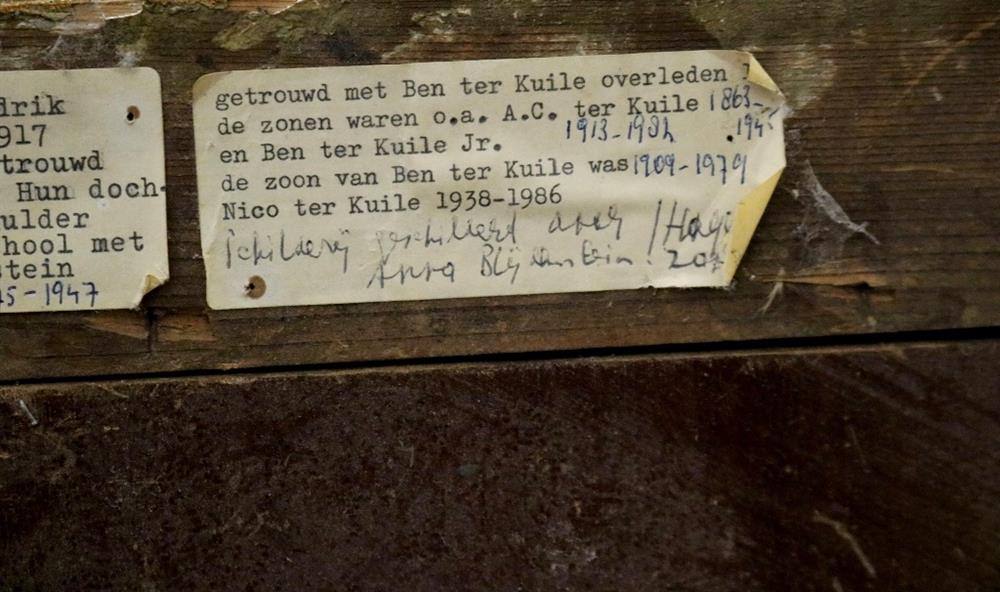 drik
917
trouwd
Hun doch-
ulder
hool met
tein
5-1947
getrouwd met Ben ter Kuile overleden
de zonen waren o.a. A.C. ter Kuile 1863-
1913-1982 .194
en Ben ter Kuile Jr.
de zoon van Ben ter Kuile was 1909-1979
Nico ter Kuile 1938-1986
schilderij geschilderd door
Anna Blijdenstein